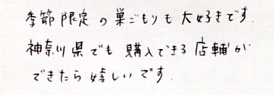 季節限定の巣ごもりも大好きです。
神奈川県でも購入できる店舗が
できたら嬉しいです。